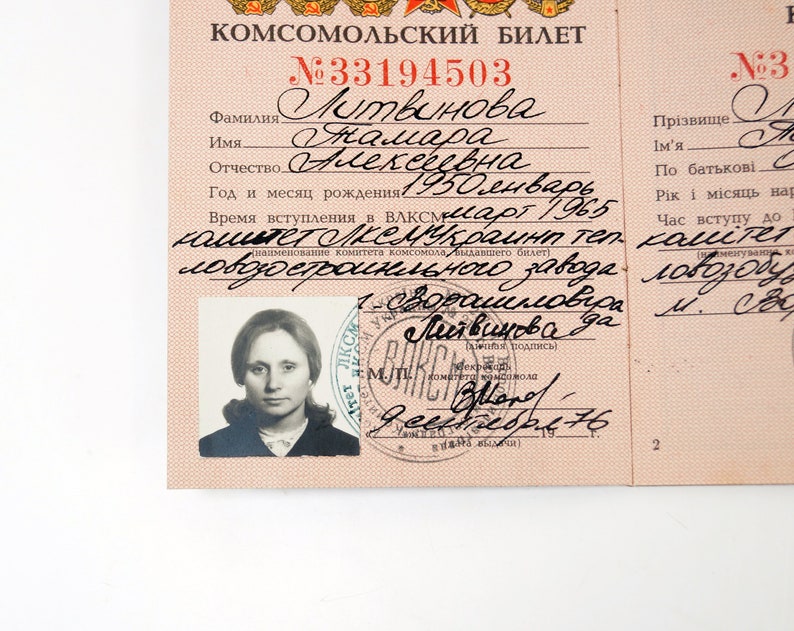 КОМСОМОЛЬСКИЙ БИЛЕТ
№33194503
Фамилия Литвинова
Имя Тамара
Отчество Алексеевна
Год и месяц рождения 1950 январь
Время вступления в ВЛКСМ март 1965
комитет ЛКСМ Украины теп-
(наименование комитета комсомола, выдавшего билет)
ловозостроительного завода
г. Ворошиловгра
да
Литвинова
(личная подпись)
М.П.
Секретарь
комитета комсомола
ВЛКСМ
9 сентября 76
19 г.
(дата выдачи)
К
№3
Прізвище
Ім'я
По батькові
Рік і місяць нар
Час вступу до
комітет
(найменування
ловозобуд
м. Во
2